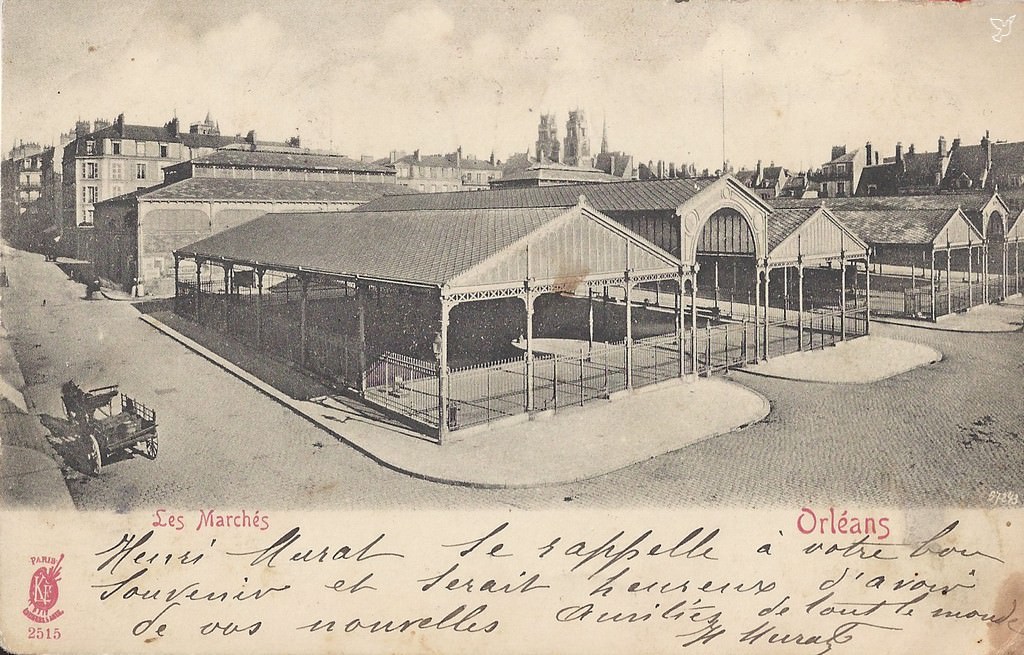 97343
Les Marchés
Orléans
Henri Murat se rappelle à votre bon
Souvenir et serait heureux d'avoir
de vos nouvelles
Amitiés de tout le monde
H Murat
PARIS
2515